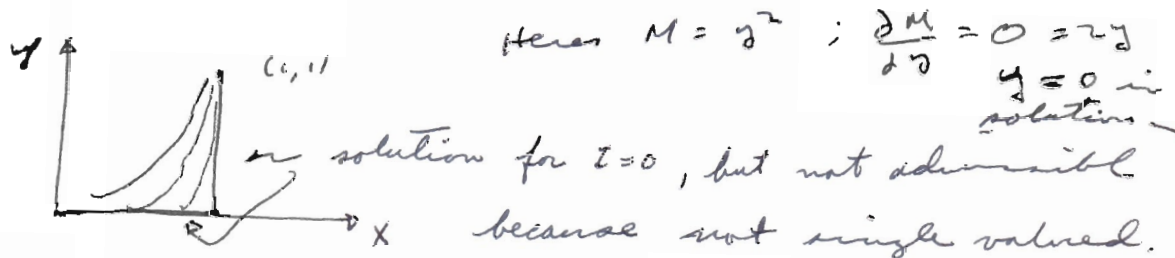 Here M = y² ; ∂M/∂y = 0 = 2y
y
(1, 1)
y = 0 is
solution
or solution for I=0, but not admissible
x because not single valued.